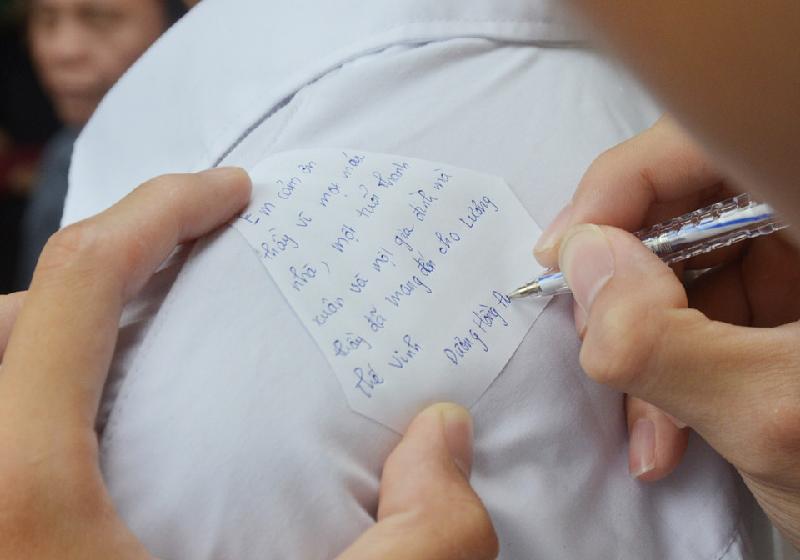 Em cảm ơn
thầy vì mọi mái
nhà, một tuổi thanh
xuân và một gia đình mà
thầy đã mang đến cho Lương
Thế Vinh
Dương Hồng